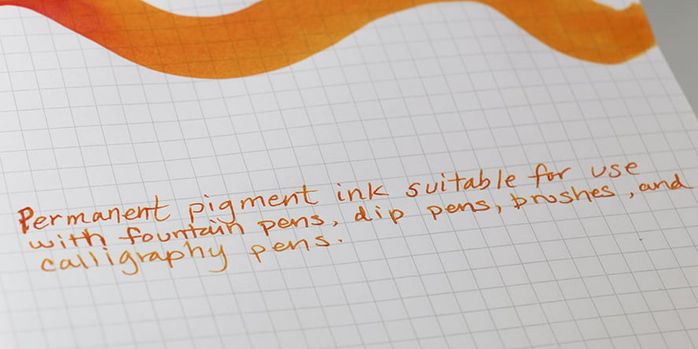 Permanent pigment ink suitable for use
with fountain pens, dip pens, brushes, and
calligraphy pens.